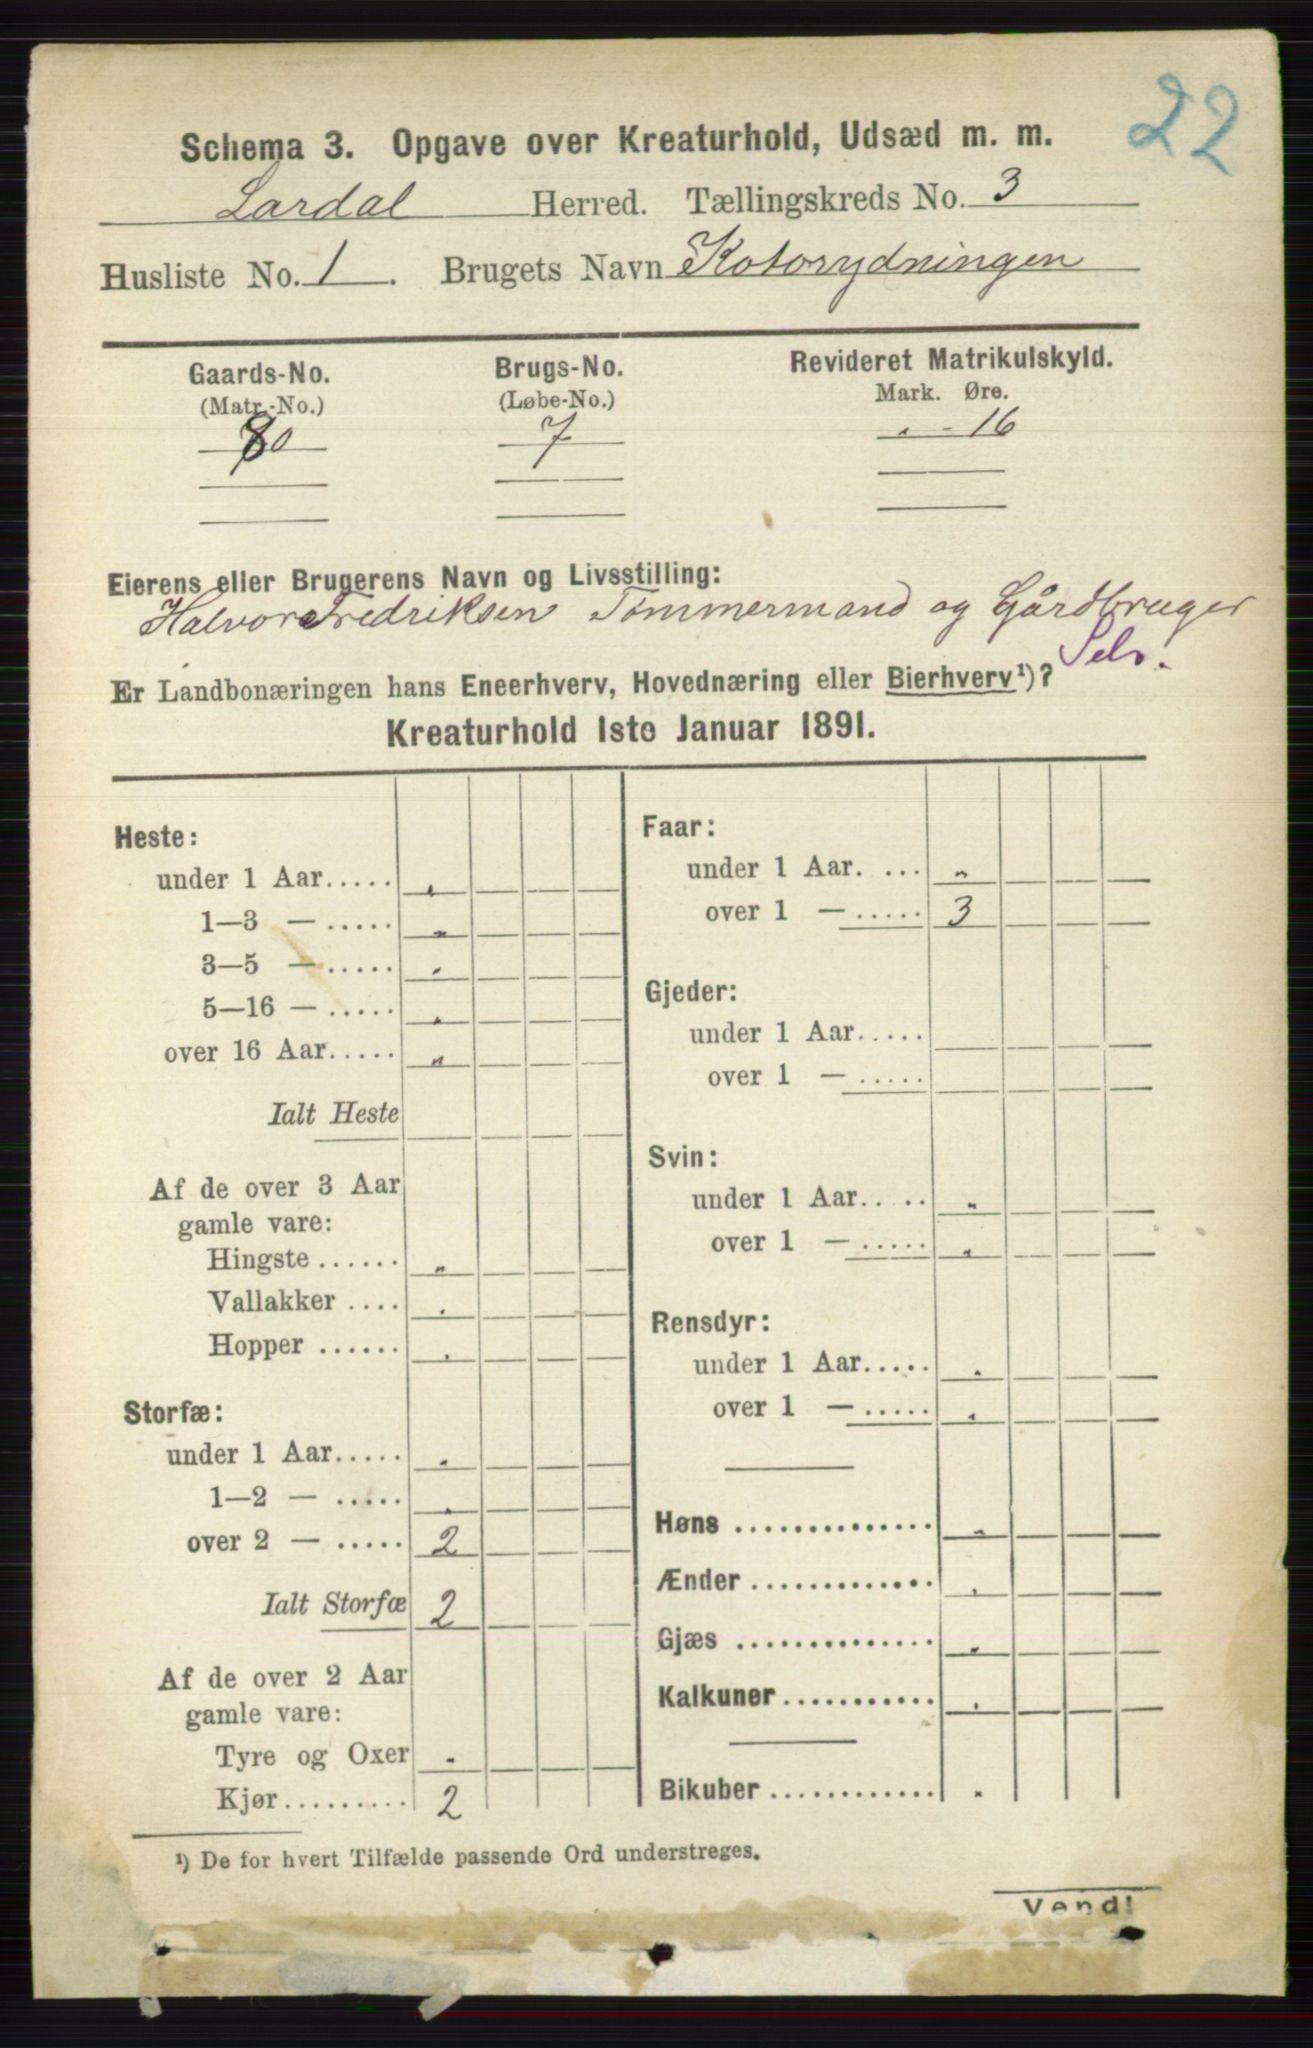 22
Schema 3. Opgave over Kreaturhold, Udsæd m. m.
Lardal Herred. Tællingskreds No. 3
Husliste No. 1. Brugets Navn Kotorydningen
Gaards-No. Brugs-No. Revideret Matrikulskyld.
(Matr.-No.) (Løbe-No.) Mark. Øre.
80 7 " 16
Eierens eller Brugerens Navn og Livsstilling:
Halvor Fredriksen Tømmermand og Gårdbruger
Selv.
Er Landbonæringen hans Eneerhverv, Hovednæring eller Bierhverv¹)?
Kreaturhold 1ste Januar 1891.
Heste:
under 1 Aar..... "
1—3 — ..... "
3—5 — ..... "
5—16 — ..... "
over 16 Aar..... "
Ialt Heste
Af de over 3 Aar
gamle vare:
Hingste ...... "
Vallakker .... "
Hopper ...... "
Storfæ:
under 1 Aar..... "
1—2 — ..... "
over 2 — ..... 2
Ialt Storfæ 2
Af de over 2 Aar
gamle vare:
Tyre og Oxer "
Kjør......... 2
Faar:
under 1 Aar. ... "
over 1 — ..... 3
Gjeder:
under 1 Aar.....
over 1 — .....
Svin:
under 1 Aar..... "
over 1 — ..... "
Rensdyr:
under 1 Aar..... "
over 1 — ..... "
Høns .............. "
Ænder ............. "
Gjæs .............. "
Kalkuner ........... "
Bikuber ............ "
¹) De for hvert Tilfælde passende Ord understreges.
Vend!